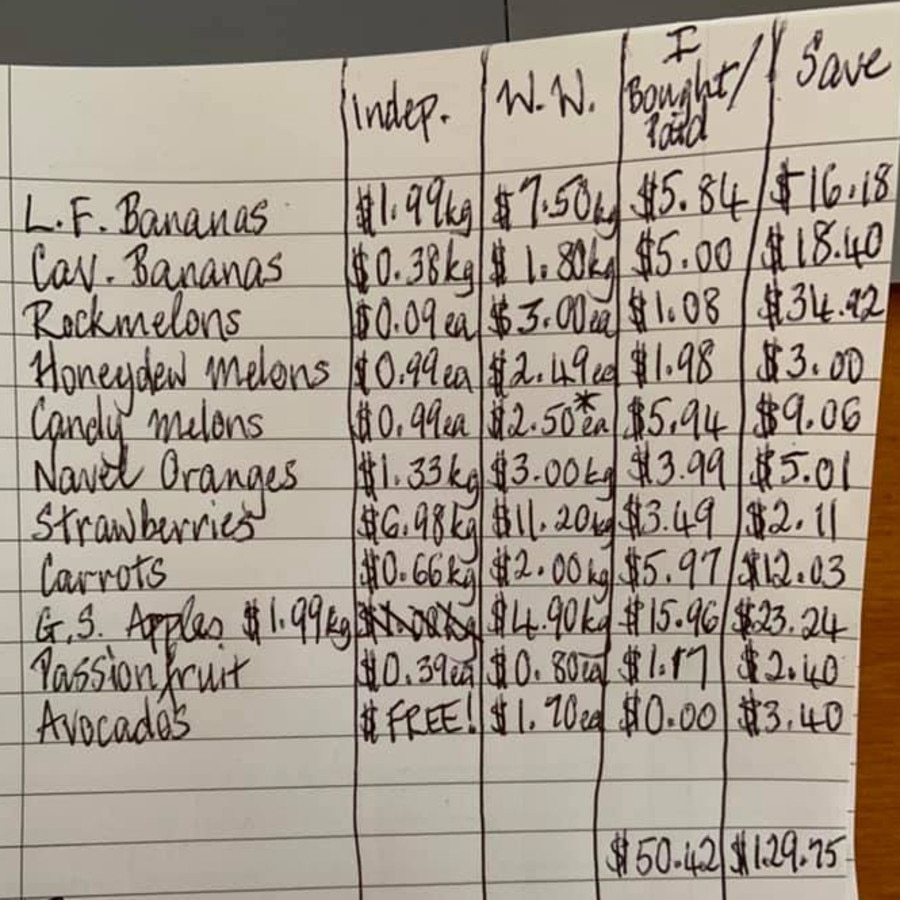 Indep. W.W. I Bought/Paid Save
L.F. Bananas $1.99kg $7.50kg $5.84 $16.18
Cav. Bananas $0.38kg $1.80kg $5.00 $18.40
Rockmelons $0.09ea $3.00ea $1.08 $34.92
Honeydew Melons $0.99ea $2.49ea $1.98 $3.00
Candy Melons $0.99ea $2.50*ea $5.94 $9.06
Navel Oranges $1.33kg $3.00kg $3.99 $5.01
Strawberries $6.98kg $11.20kg $3.49 $2.11
Carrots $0.66kg $2.00kg $5.97 $12.03
G.S. Apples $1.99kg $4.90kg $15.96 $23.24
Passionfruit $0.39ea $0.80ea $1.17 $2.40
Avocados $FREE! $1.70ea $0.00 $3.40
$50.42 $129.75